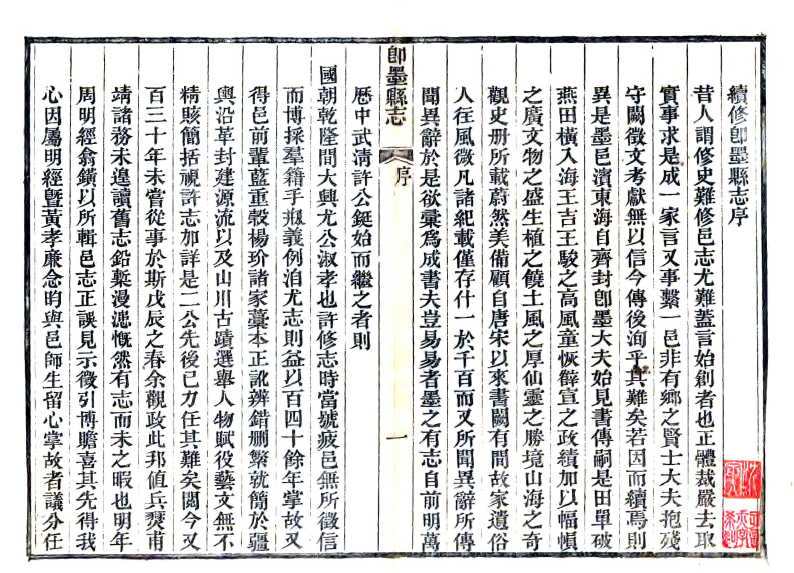 續修卽墨縣志序
昔人謂修史難修邑志尤難蓋言始創者也正體裁嚴去取
實事求是成一家言又事繫一邑非有鄉之賢士大夫抱殘
守闕徵文考獻無以信今傳後洵乎其難矣若因而續焉則
異是墨邑濱東海自齊封卽墨大夫始見書傳嗣是田單破
燕田橫入海王吉王駿之高風童恢薛宣之政績加以幅幀
之廣文物之盛生植之饒土風之厚仙靈之勝境山海之奇
觀史册所載蔚然美備顧自唐宋以來書闕有間故家遺俗
人往風微凡諸紀載僅存什一於千百而又所聞異辭所傳
聞異辭於是欲彙爲成書夫豈易易者墨之有志自前明萬
卽墨縣志
序
一
厯中武清許公鋌始而繼之者則
國朝乾隆間大興尤公淑孝也許修志時當號疲邑無所徵信
而博採羣籍手㧞義例洎尤志則益以百四十餘年掌故又
得邑前輩藍重穀楊玠諸家藁本正訛辨錯删繁就簡於疆
輿沿革封建源流以及山川古蹟選舉人物賦役藝文無不
精賅簡括視許志加詳是二公先後已力任其難矣閱今又
百三十年未嘗從事於斯戊辰之春余觀政此邦值兵燹甫
靖諸務未遑讀舊志鉛槧漫漶慨然有志而未之暇也明年
周明經翕鐄以所輯邑志正誤見示徵引博贍喜其先得我
心因屬明經曁黃孝廉念昀與邑師生留心掌故者議分任